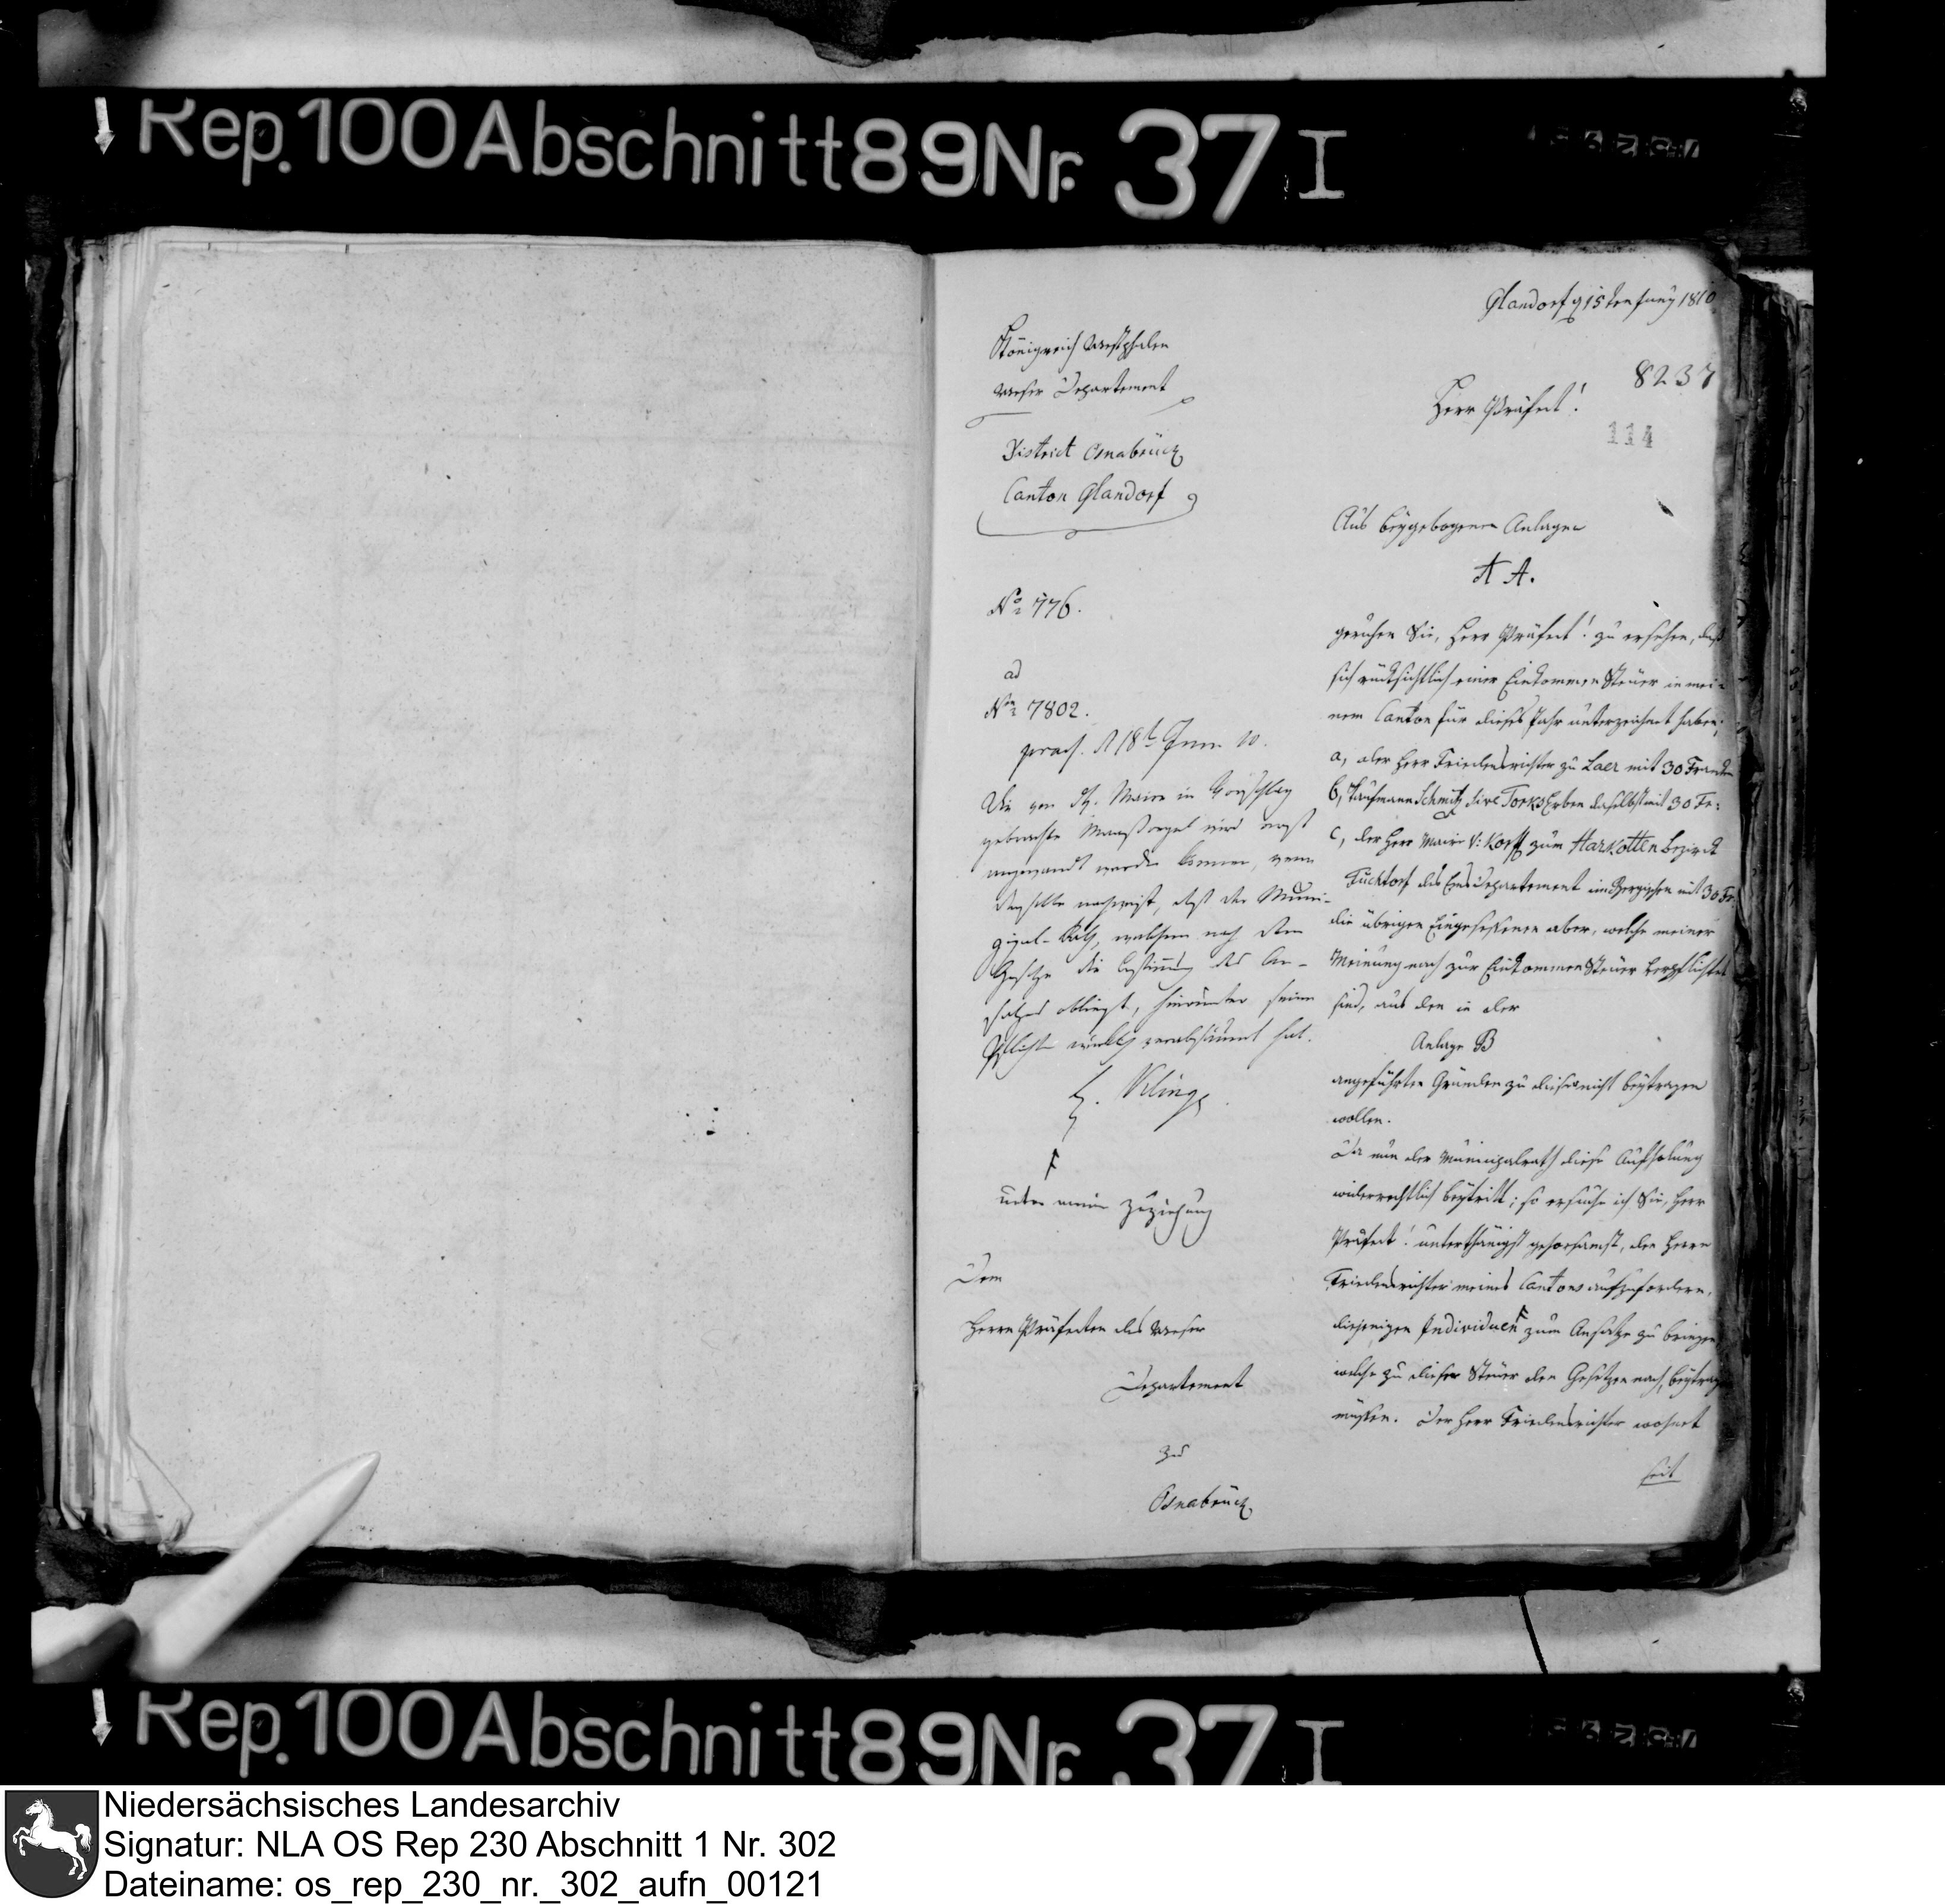 Rep. 100 Abschnitt 89 Nr. 37 I
Glandorf d 15ten Juny 1810
Königreich Westphalen
Weser Departement
8237
Herr Präfect!
114
District Osnabrück
Canton Glandorf
No 776.
ad
No 7802.
praes. d 18t Juni 10.
Die von H. Maire in Vorschlag
gebrachte Maaßregel wird erst
angewandt werden können, wenn
derselbe nachweist, daß der Muni-
zipal-Rath, welchem nach dem
Gesetze die Bestimmung des An-
satzes obliegt, hierunter seine
Pflicht wirklich verabsäumt hat.
unter meiner Zuziehung
Dem
Herrn Präfecten des Weser
Departement
zu
Osnabrück
Aus beygebogenen Anlagen
A A.
geruhen Sie, Herr Präfect! zu ersehen, daß
sich rücksichtlich einer Einkommen Steuer in mei-
nem Canton für dieses Jahr unterzeichnet haben;
a, der Herr Friedensrichter zu Laer mit 30 Franken
b, Kaufmann Schmitz sive Torks Erben daselbst mit 30 Fr:
c, der Herr Maire V: Korff zum Harkotten Bezirk
Füchtorf des Ems Departement im Bergischen mit 30 Fr.
die übrigen Eingesessenen aber, welche meiner
Meinung nach zur Einkommen Steuer verpflichtet
sind, aus den in der
Anlage B
angeführten Gründen zu dieser nicht beytragen
wollen.
Da nun der Municipalrath diese
widerrechtlich beytritt; so ersuche ich Sie, Herr
Präfect! unterthänigst gehorsamst, den Herrn
Friedensrichter meines Cantons aufzufordern,
diejenigen Individuen zum Ansatze zu bringen
welche zu dieser Steuer den Gesetzen nach, beytragen
müssen. Der Herr Friedensrichter wohnet
seit
Rep. 100 Abschnitt 89 Nr. 37 I
Niedersächsisches Landesarchiv
Signatur: NLA OS Rep 230 Abschnitt 1 Nr. 302
Dateiname: os_rep_230_nr._302_aufn_00121